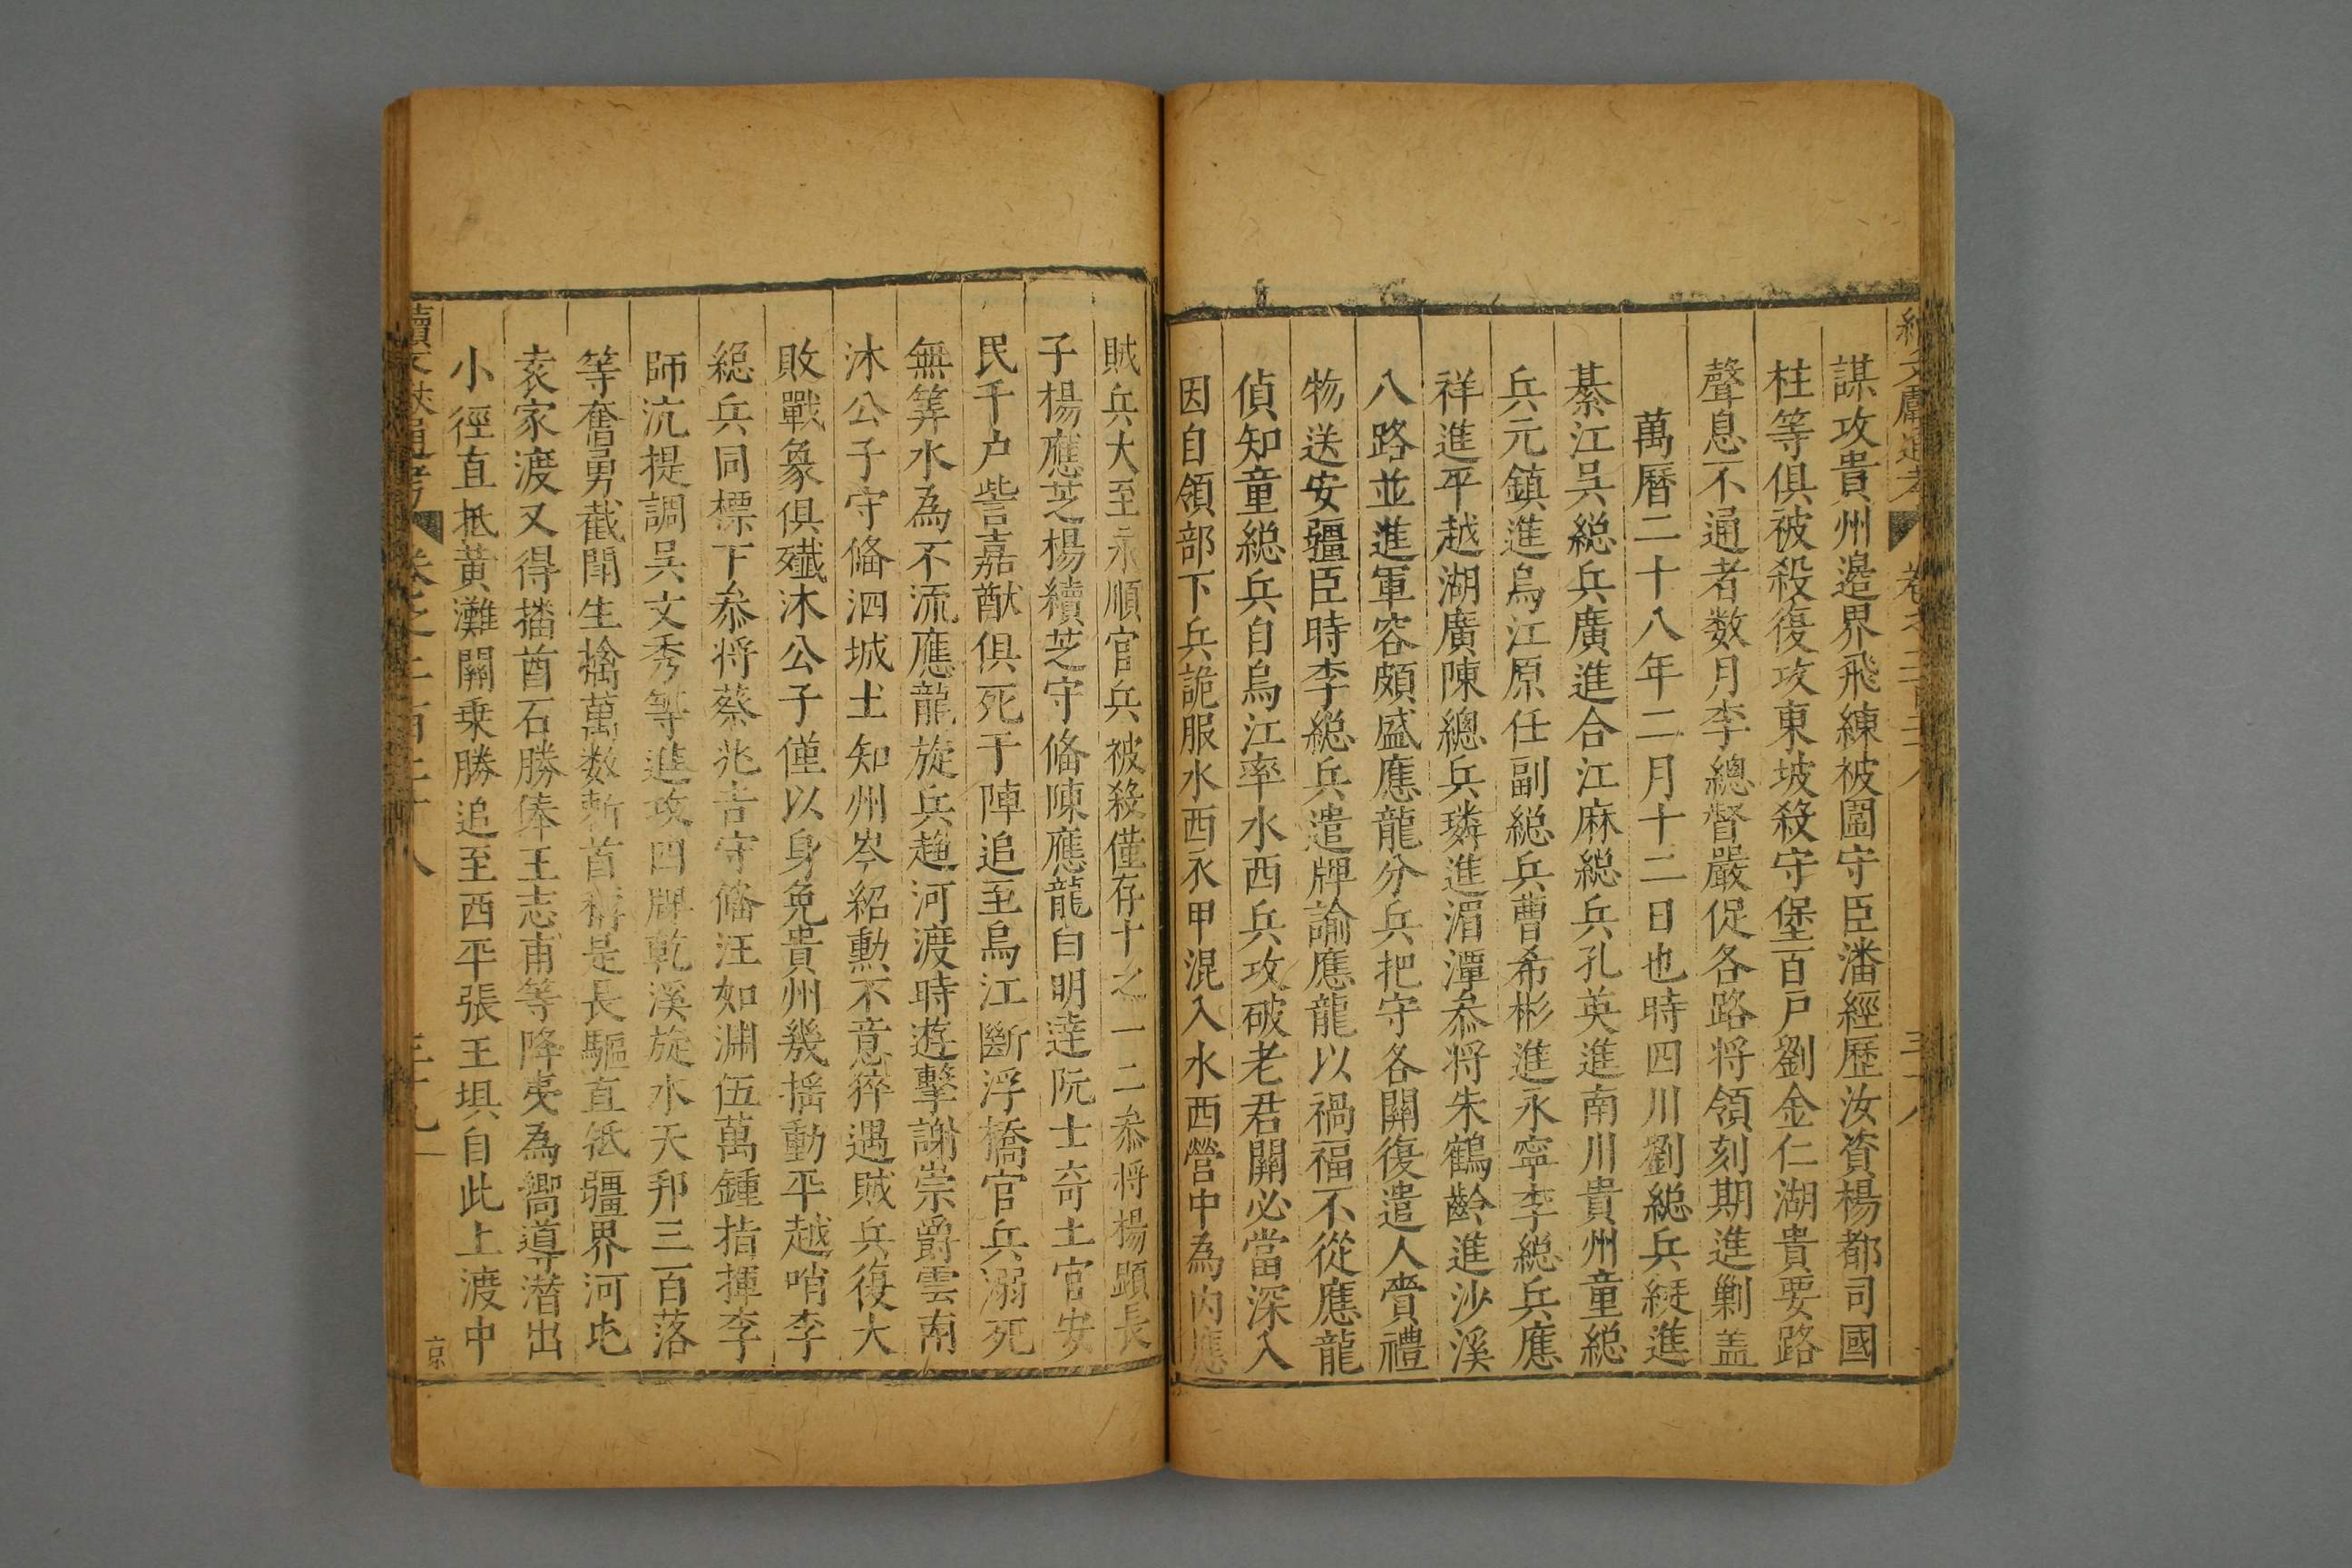 謀攻貴州邉界飛練被圍守臣潘經歷汝資楊都司國
柱等俱被殺復攻東坡殺守堡百戶劉金仁湖貴要路
聲息不通者数月李總督嚴促各路将領刻期進剿盖
萬曆二十八年二月十二日也時四川劉緫兵綎進
綦江吳緫兵廣進合江麻緫兵孔英進南川貴州童緫
兵元鎮進烏江原任副緫兵曹希彬進永寧李緫兵應
祥進平越湖廣陳總兵璘進湄潭叅将朱鶴齡進沙溪
八路並進軍容頗盛應龍分兵把守各關復遣人賫禮
物送安疆臣時李緫兵遣牌諭應龍以禍福不從應龍
偵知童緫兵自烏江率水西兵攻破老君關必當深入
因自領部下兵詭服水西衣甲混入水西營中為内應
賊兵大至永順官兵被殺僅存十之一二叅将楊顕長
子楊應芝楊續芝守偹陳應龍白明逹阮士奇土官安
民千户訾嘉猷俱死于陣追至烏江斷浮橋官兵溺死
無筭水為不流應龍旋兵趨河渡時遊擊謝崇爵雲南
沐公子守偹泗城土知州岑紹勳不意猝遇賊兵復大
敗戰象俱殱沐公子僅以身免貴州幾揺動平越哨李
緫兵同標下叅将蔡兆吉守偹汪如淵伍萬鍾指揮李
師沆提調吳文秀等進攻四牌乾溪旋水天邦三百落
等奮勇截閗生擒萬数斬首稱是長驅直抵疆界河屯
袁家渡又得播酋石勝俸王志甫等降夷為嚮導潜出
小徑直抵黃灘關乗勝追至西平張王垻自此上渡中
續文獻通考 卷之二百三十八
京